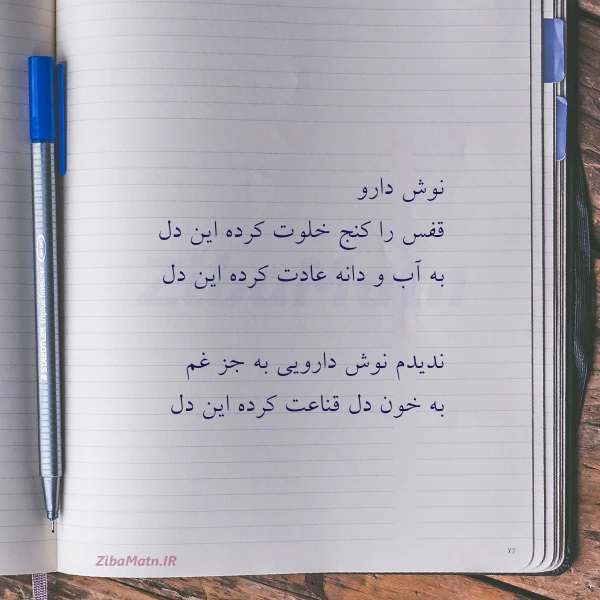 نوش دارو
قفس را کنج خلوت کرده این دل
به آب و دانه عادت کرده این دل
ندیدم نوش دارویی به جز غم
به خون دل قناعت کرده این دل
ZibaMatn.IR